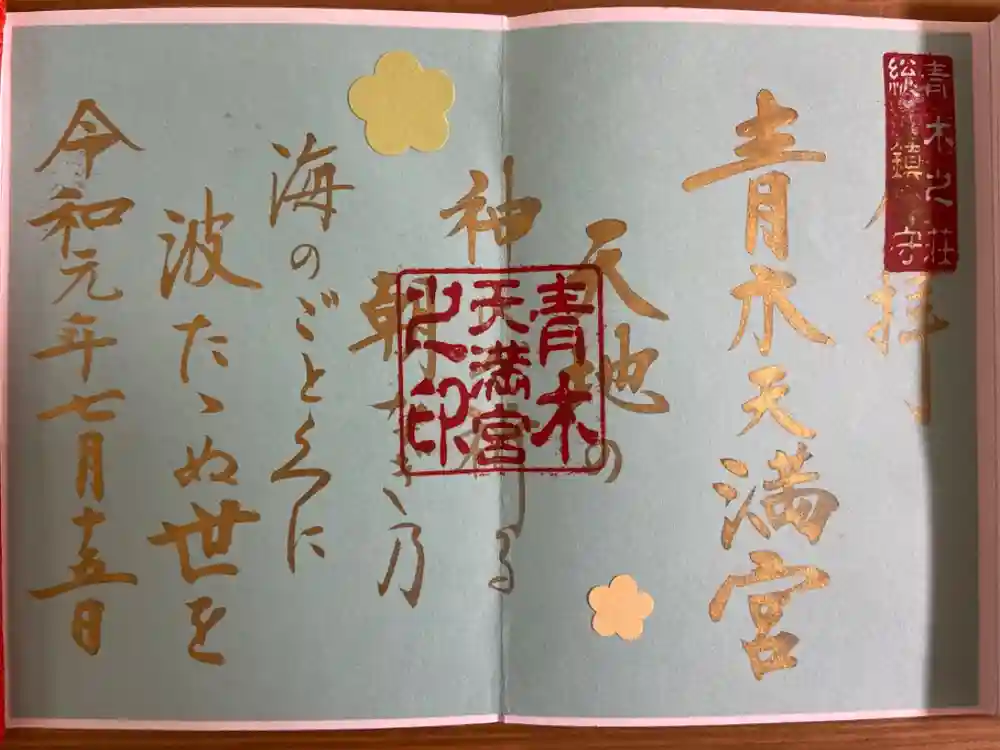 青木之荘
総鎮守
拝
青木天満宮
天地の
神祈る
朝なぎ乃
海のごとくに
波たゝぬ世を
令和元年七月十五日
青木
天満宮
之印